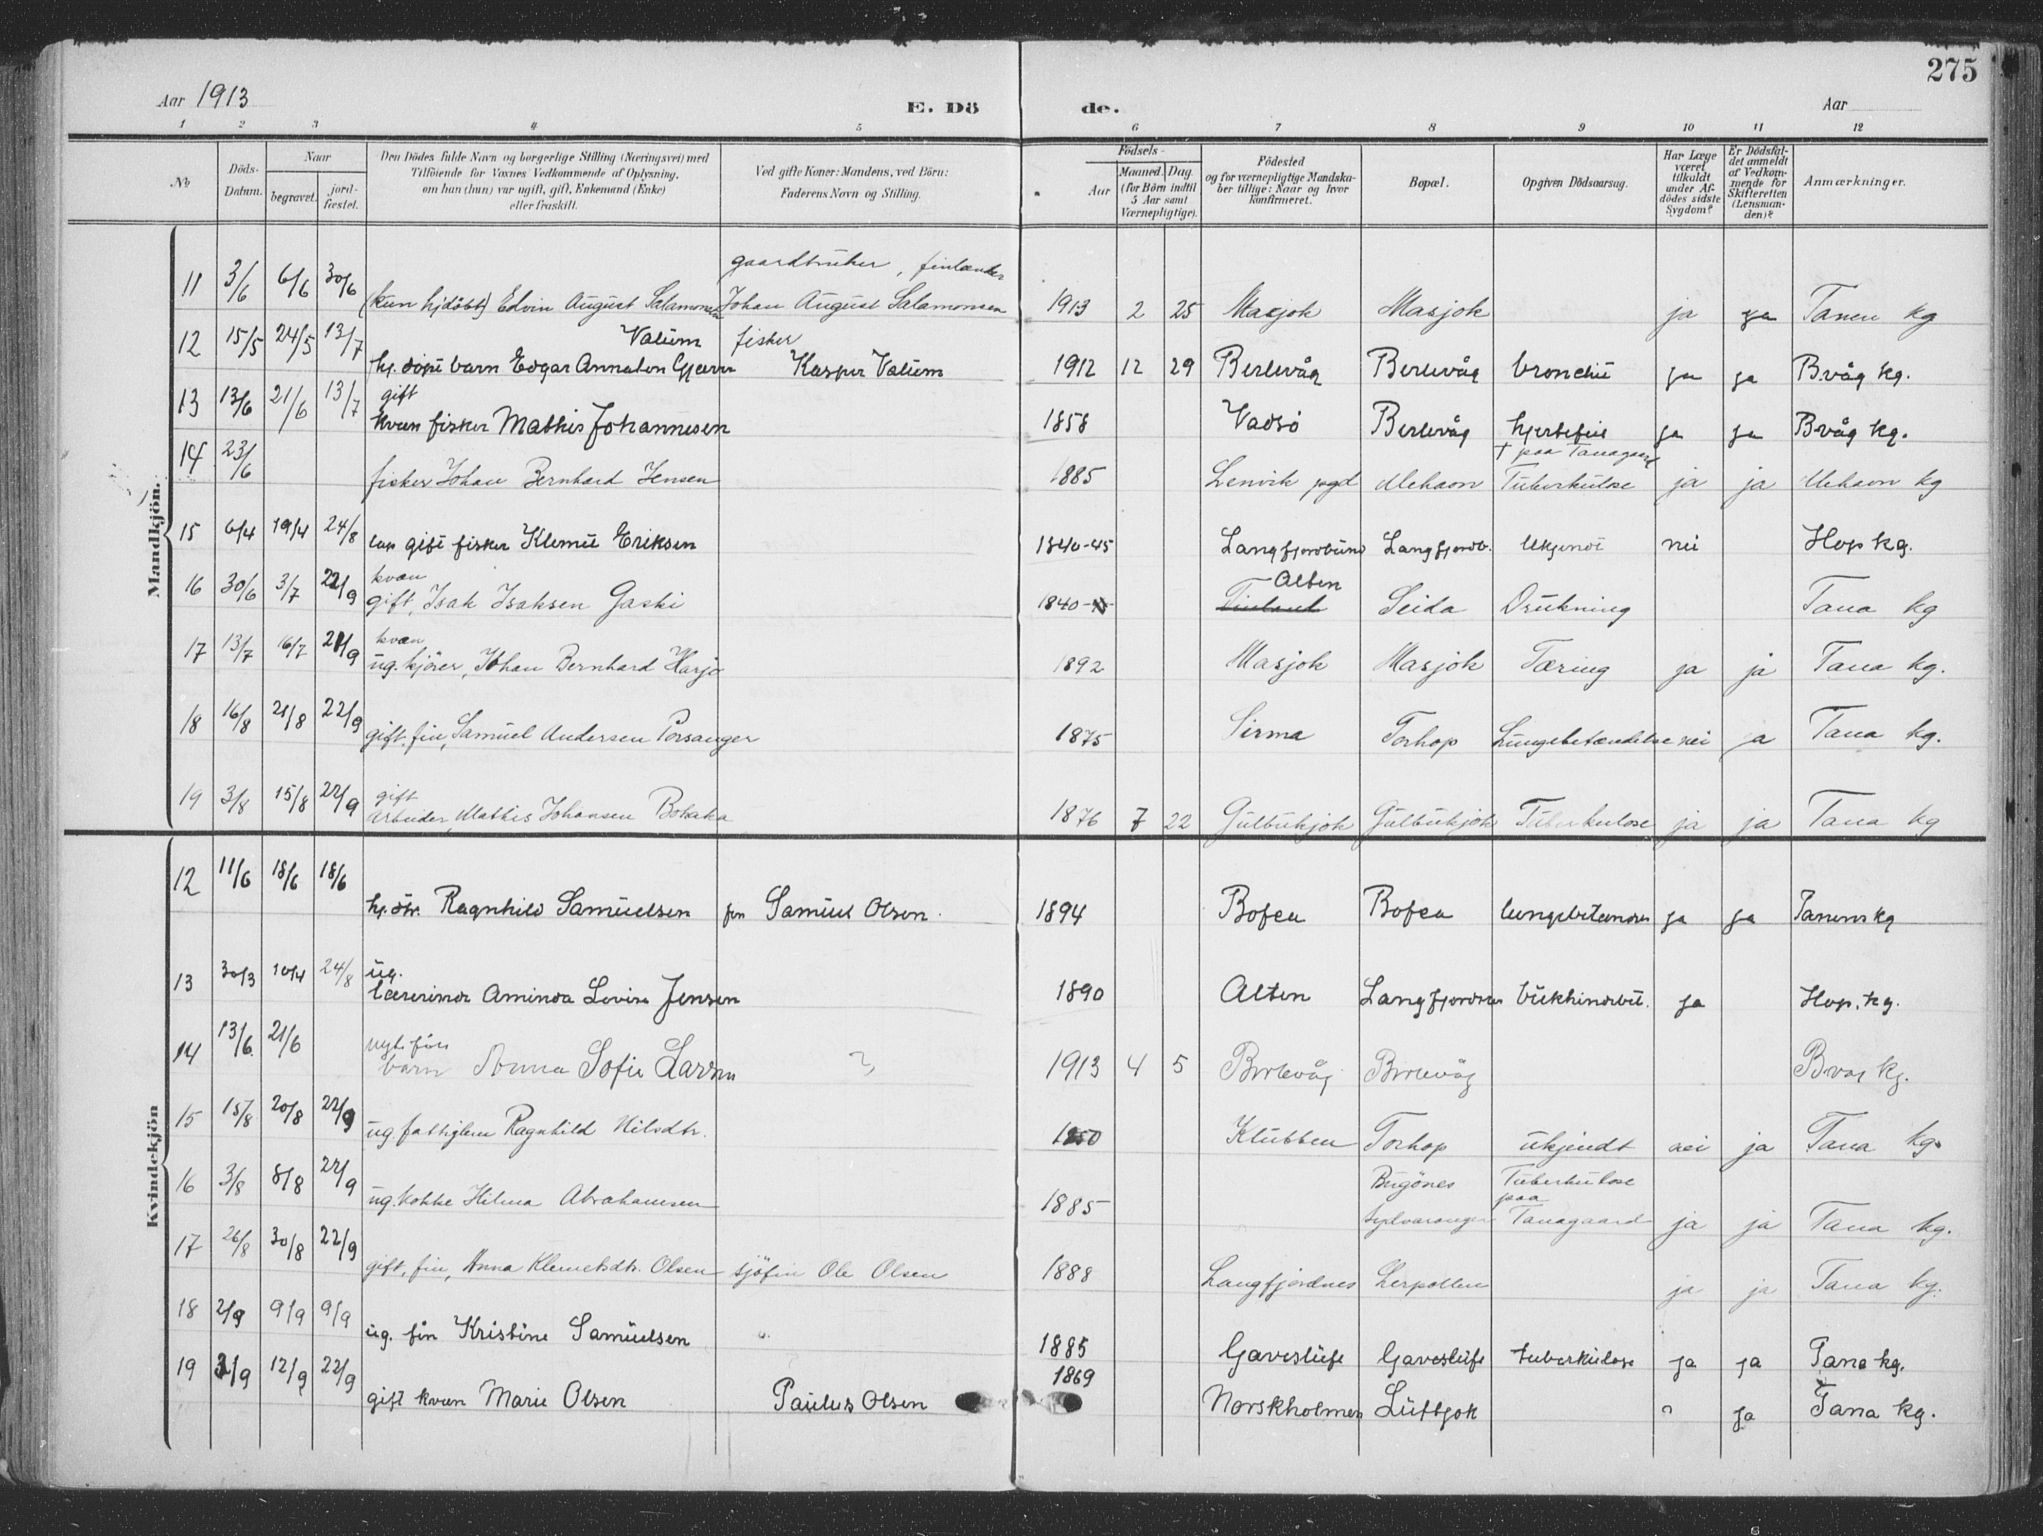 275
Aar 1913
E. Dö de.
Aar
1 2 3 4 5 6 7 8 9 10 11 12
No
Döds-Datum.
Naar
begravet.
jord-fæstet.
Den Dödes fulde Navn og borgerlige Stilling (Næringsvei) med
Tilföiende for Voxnes Vedkommende af Oplysning,
om han (hun) var ugift, gift, Enkemand (Enke)
eller fraskilt.
Ved gifte Koner: Mandens, ved Börn:
Faderens Navn og Stilling.
Födsels-
Aar
Maaned. Dag
(for Börn indtil
5 Aar samt
Værnepligtige).
Födested
og for værnepligtige Mandska-
ber tillige: Naar og hvor
konfirmeret.
Bopæl.
Opgiven Dödsaarsag.
Har Læge
været
tilkaldt
under Af-
dödes sidste
Sygdom?
Er Dödsfal-
det anmeldt
af Vedkom-
mende for
Skifteretten
(Lensman-
den)?
Anmærkninger.
Mandkjön.
gaardbruker, finlænder
11 3/6 6/6 30/6 (kun hjdöbt) Edvin August Salamonsen Johan August Salamonsen 1913 2 25 Masjok Masjok ja ja Tanen kg
Valum fisker
12 15/5 24/5 13/7 hj. döpt barn Edgar Annaton Gjæver Kasper Valum 1912 12 29 Berlevåg Berlevåg bronchit ja ja Bvåg kg.
gift
13 13/6 21/6 13/7 kvæn fisker Mathis Johannesen 1858 Vadsö Berlevåg hjertefeil ja ja Bvåg kg.
† paa Tanagaard
14 23/6 fisker Johan Bernhard Jensen 1885 Lenvik pgd Mehavn Tuberkulose ja ja Mehavn kg
15 6/4 19/4 24/8 lap gift fisker Klemit Eriksen 1840-45 Langfjordbund Langfjordb. Ukjendt nei Hop kg.
kvæn Alten
16 30/6 3/7 22/9 gift, Isak Isaksen Gaski 1840 Finland Seida Drukning Tana kg
kvæn
17 13/7 16/7 21/9 ug. kjörer, Johan Bernhard Harjo 1892 Masjok Masjok Tæring ja ja Tana kg.
18 16/8 21/8 22/9 gift, fin, Samuel Andersen Porsanger 1875 Sirma Torhop Lungebetændelse nei ja Tana kg.
gift
19 3/8 15/8 22/9 arbeider, Mathis Johansen Bohaka 1876 7 22 Gulbukjok Gulbukjok Tuberkulose ja ja Tana kg
Kvindekjön
12 11/6 18/6 18/6 hj. dtr. Ragnhild Samuelsen fin Samuel Olsen. 1894 Bofea Bofea ja ja Tanens kg
ug.
13 30/3 10/4 24/8 lærerinde Aminda Lovise Jensen 1890 Alten Langfjordnes bukhindebet. ja Hop. kg.
nyt. för
14 13/6 21/6 barn Anna Sofie Larsen ? 1913 4 5 Berlevåg Berlevåg Bvag kg.
15 15/8 20/8 22/9 ug. fattiglem Ragnhild Nilsdtr. 1850 Klubben Torhop ukjendt nei ja Tana kg.
Bugönes Tuberkulose
paa
16 3/8 8/8 22/9 ug. kokke Hilma Abrahamsen 1885 Sydvaranger Tanagaard ja ja Tana kg.
17 26/8 30/8 22/9 gift, fin, Anna Klemetsdtr. Olsen sjöfin Ole Olsen 1888 Langfjordnes Lerpollen ja ja Tana kg.
18 2/9 9/9 9/9 ug. fin Kristine Samuelsen 1885 Gavesluft Gavesluft tuberkulose ja ja Tana kg.
19 3/9 12/9 22/9 gift kvæn Marie Olsen Paulus Olsen 1869 Norskholmen Luftjok ? ja Tana kg.